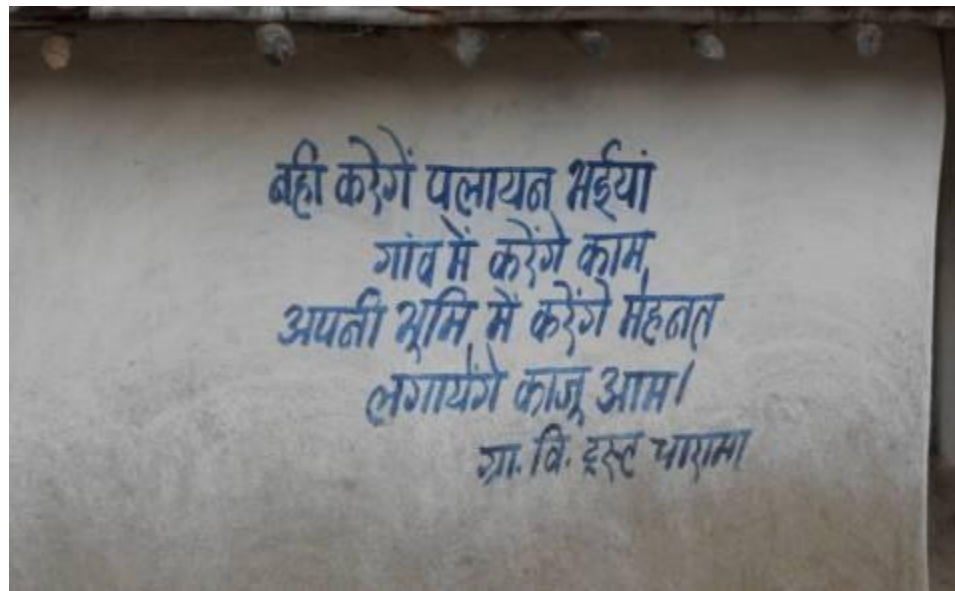 नही करेगें पलायन भईयां
गांव में करेंगे काम
अपनी भूमि मे करेंगे मेहनत
लगायेंगे काजू आम।
ग्रा. वि. ट्रस्ट चारामा